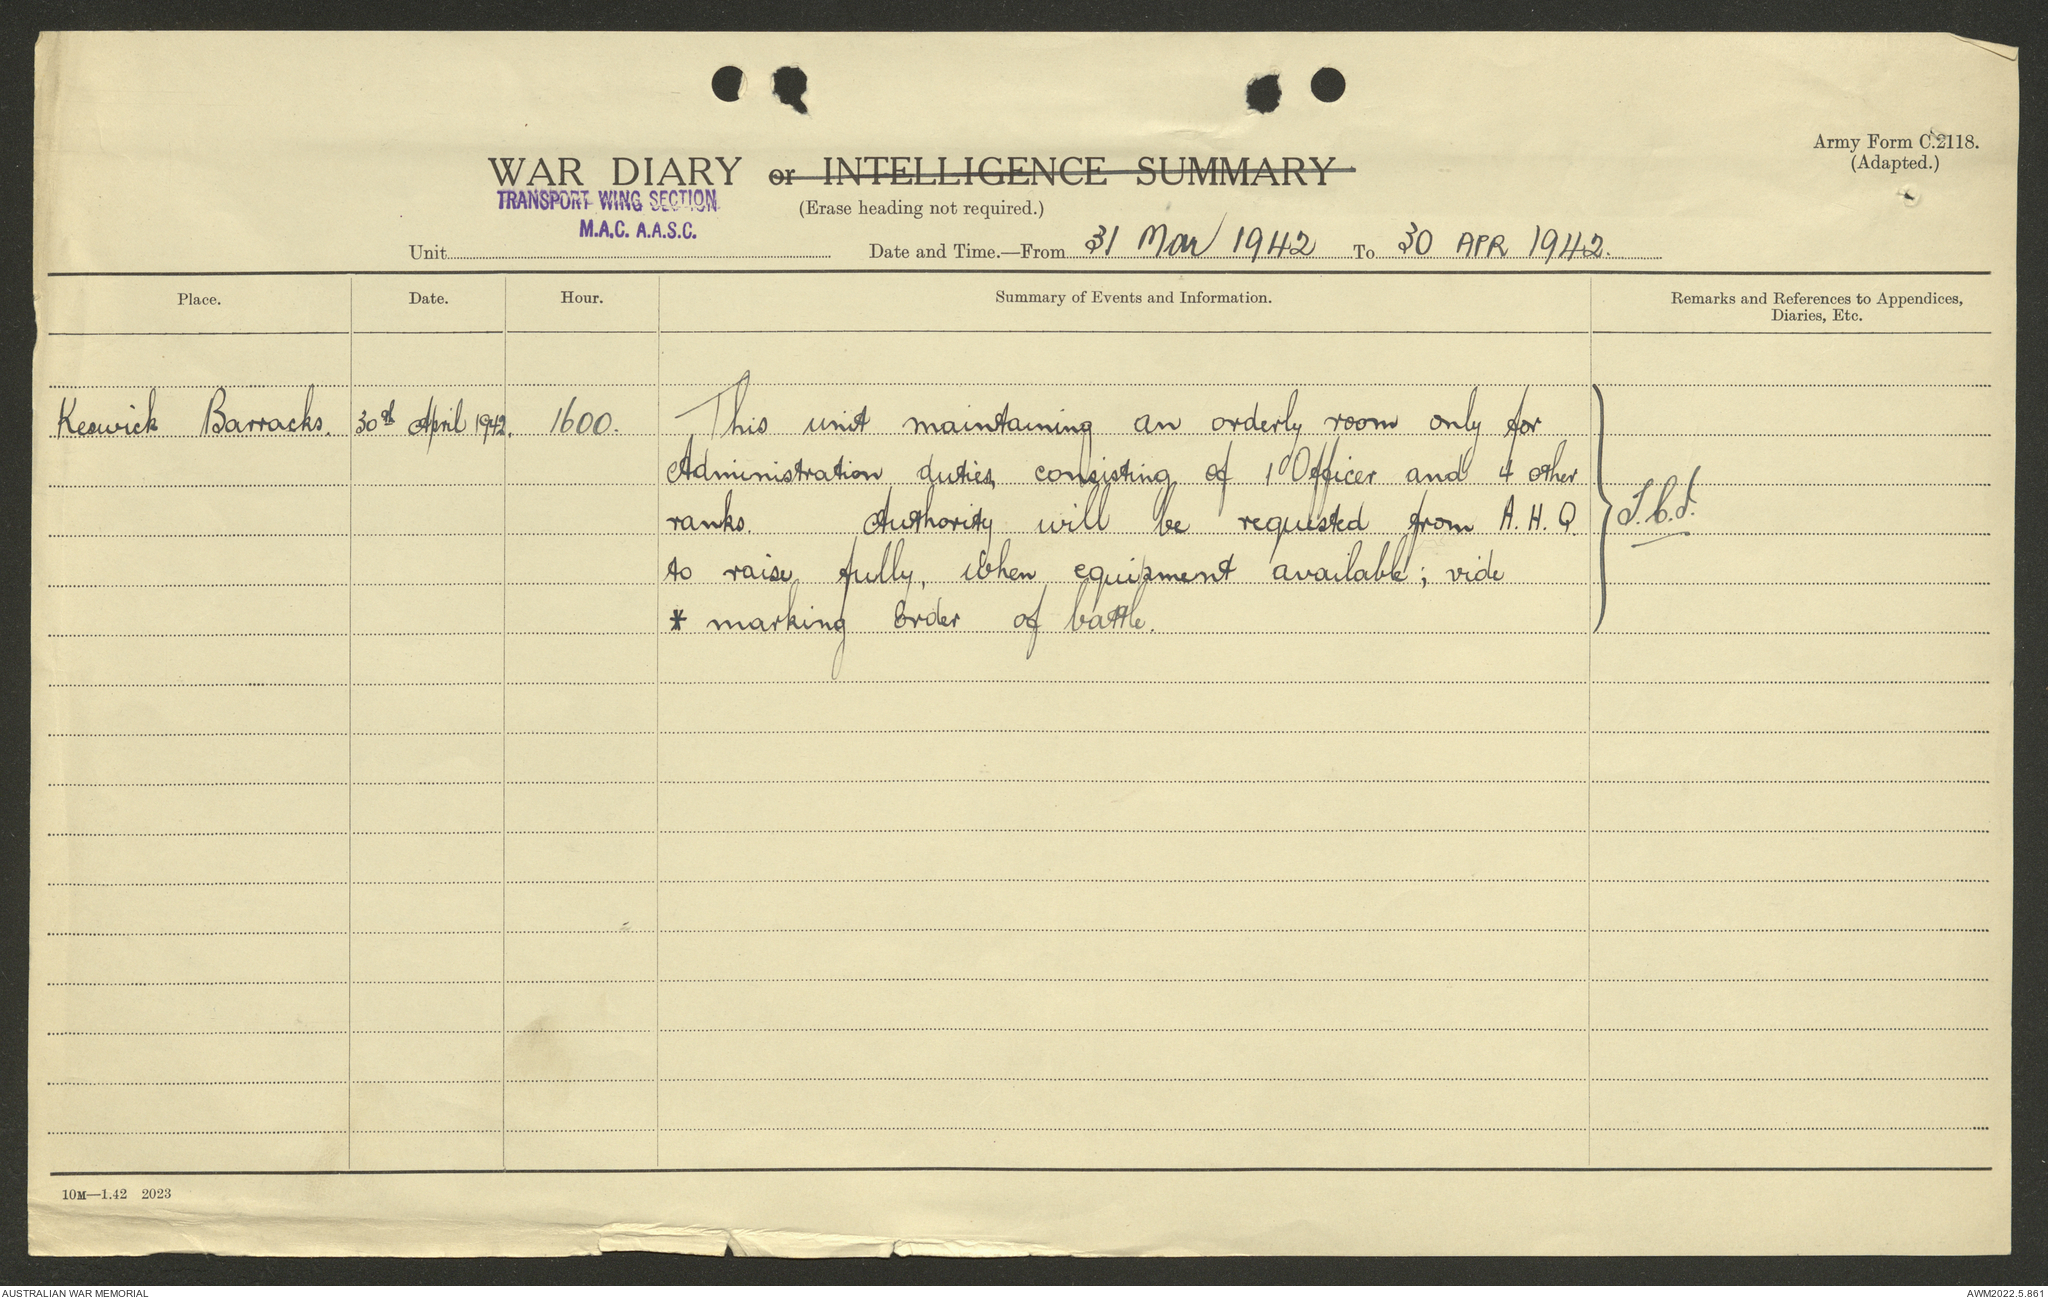 Army Form C.2118.
(Adapted.)
WAR DIARY or INTELLIGENCE SUMMARY
TRANSPORT WING SECTION
M.A.C. A.A.S.C.
(Erase heading not required.)
Unit
Date and Time.—From 31 Mar 1942 To 30 APR 1942.
Place. Date. Hour. Summary of Events and Information. Remarks and References to Appendices, Diaries, Etc.
Keswick Barracks. 30th April 1942. 1600. This unit maintaining an orderly room only for
Administration duties, consisting of 1 Officer and 4 other
ranks. Authority will be requested from A.H.Q.
to raise fully, when equipment available; vide
* marking order of battle.
10M—1.42 2023
AUSTRALIAN WAR MEMORIAL
AWM2022.5.861